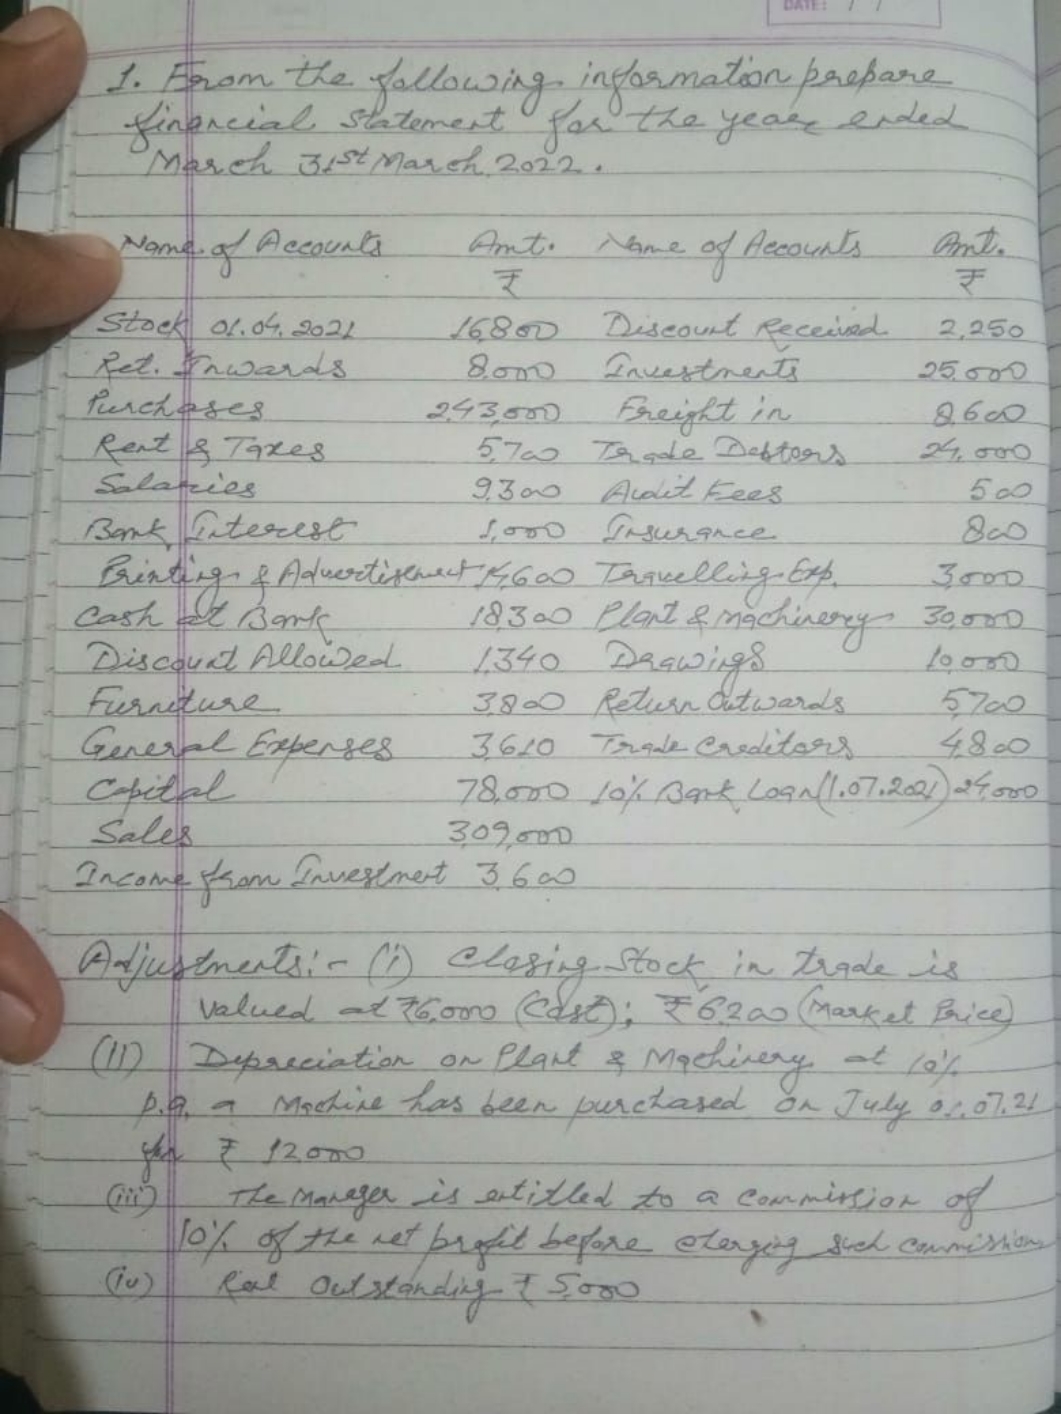 DATE: / /
1. From the following information prepare
financial Statement for the year ended
March 31st March 2022.
Name of Accounts Amt. Name of Accounts Amt.
₹ ₹
Stock 01.04.2021 16,800 Discount Received 2,250
Ret. Inwards 8,000 Investments 25,000
Purchases 243,000 Freight in 8,600
Rent & Taxes 5,700 Trade Debtors 24,000
Salaries 9,300 Audit Fees 500
Bank Interest 1,000 Insurance 800
Printing & Advertisement 14,600 Travelling Exp. 3,000
Cash at Bank 18,300 Plant & Machinery 30,000
Discount Allowed 1,340 Drawings 10,000
Furniture 3,800 Return Outwards 5,700
General Expenses 3,610 Trade Creditors 4,800
Capital 78,000 10% Bank Loan (1.07.2021) 24,000
Sales 309,000
Income from Investment 3,600
Adjustments:- (i) Closing Stock in trade is
valued at ₹6,000 (Cost); ₹6,200 (Market Price)
(ii) Depreciation on Plant & Machinery at 10%
p.a. a Machine has been purchased on July 01.07.21
for ₹ 12000
(iii) The Manager is entitled to a commission of
10% of the net profit before charging such commission
(iv) Rent Outstanding ₹ 5,000